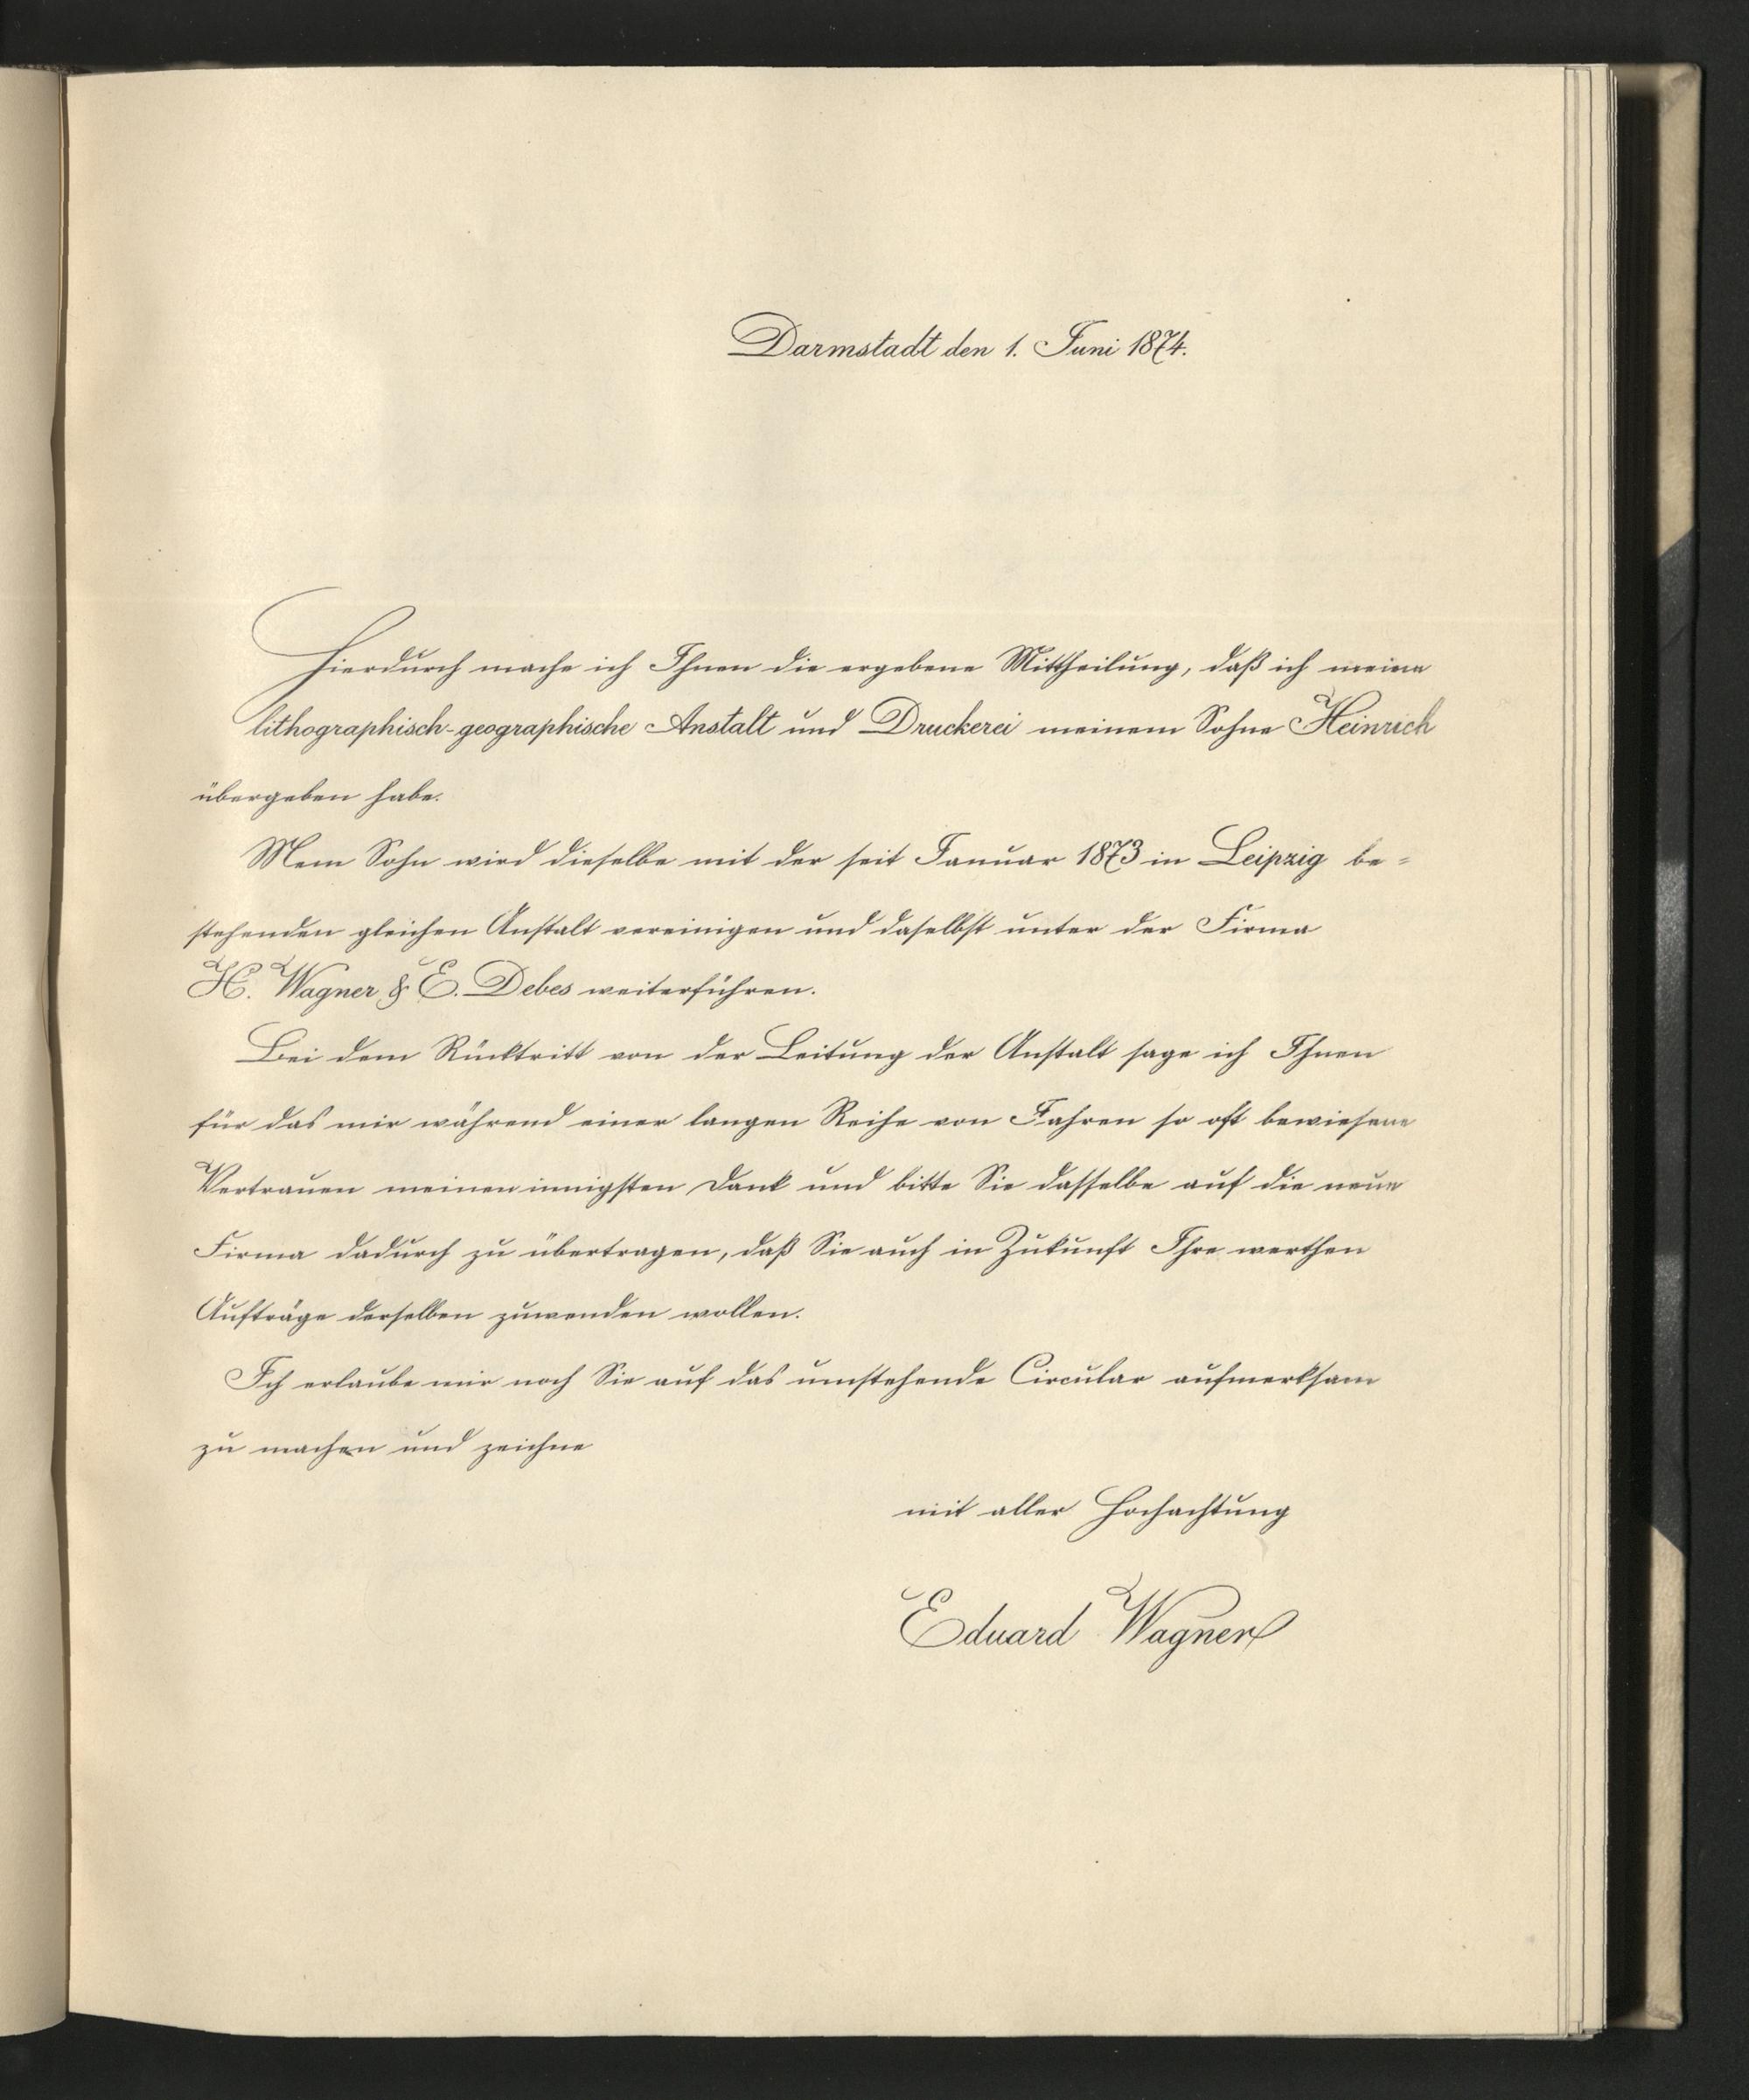 Darmstadt den 1. Juni 1874.
Hierdurch mache ich Ihnen die ergebene Mittheilung, daß ich meine
lithographisch-geographische Anstalt und Druckerei meinem Sohne Heinrich
übergeben habe.
Mein Sohn wird dieselbe mit der seit Januar 1873 in Leipzig be-
stehenden gleichen Anstalt vereinigen und daselbst unter der Firma
H. Wagner & E. Debes weiterführen.
Bei dem Rücktritt von der Leitung der Anstalt sage ich Ihnen
für das mir während einer langen Reihe von Jahren so oft bewiesene
Vertrauen meinen innigsten Dank und bitte Sie dasselbe auf die neue
Firma dadurch zu übertragen, daß Sie auch in Zukunft Ihre werthen
Aufträge derselben zuwenden wollen.
Ich erlaube mir noch Sie auf das umstehende Circular aufmerksam
zu machen und zeichne
mit aller Hochachtung
Eduard Wagner